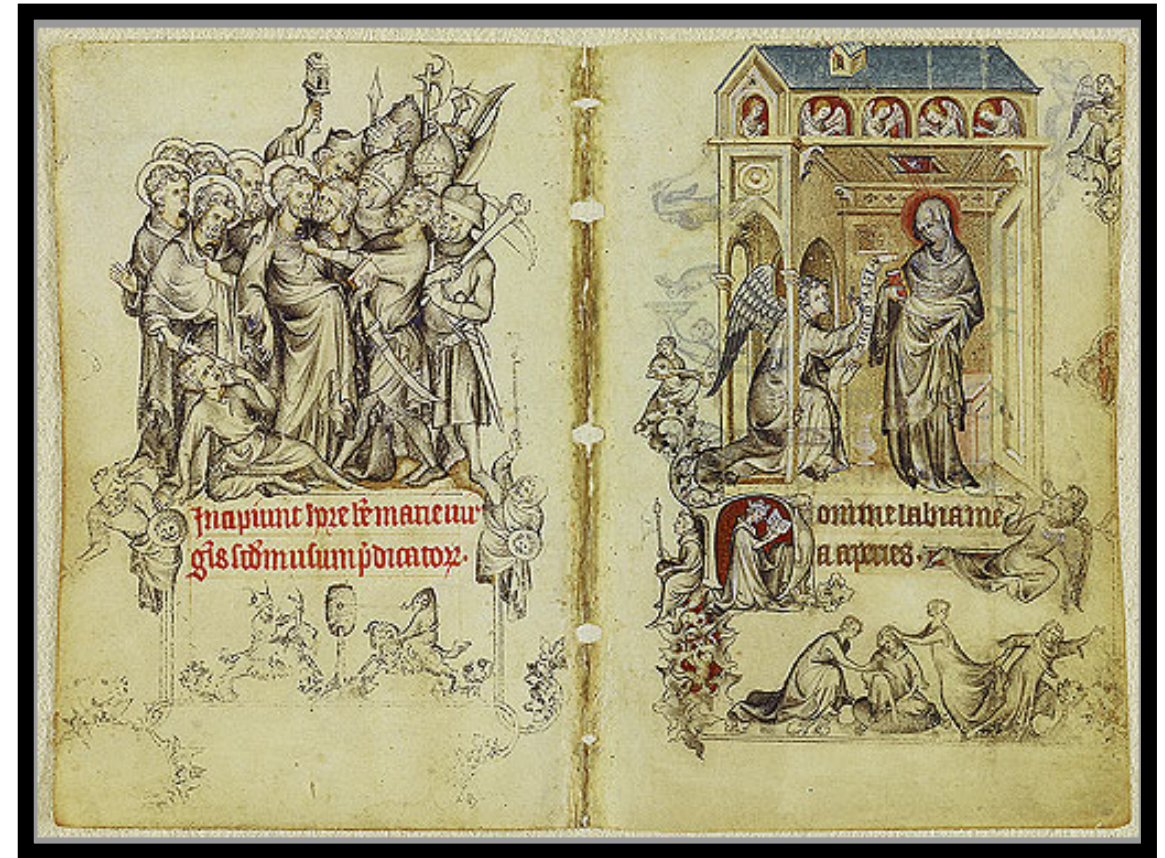 Incipiunt hore bẽ marie uir
gis scdm usum p̄dicatoꝝ.
Domine labia me
a aperies.